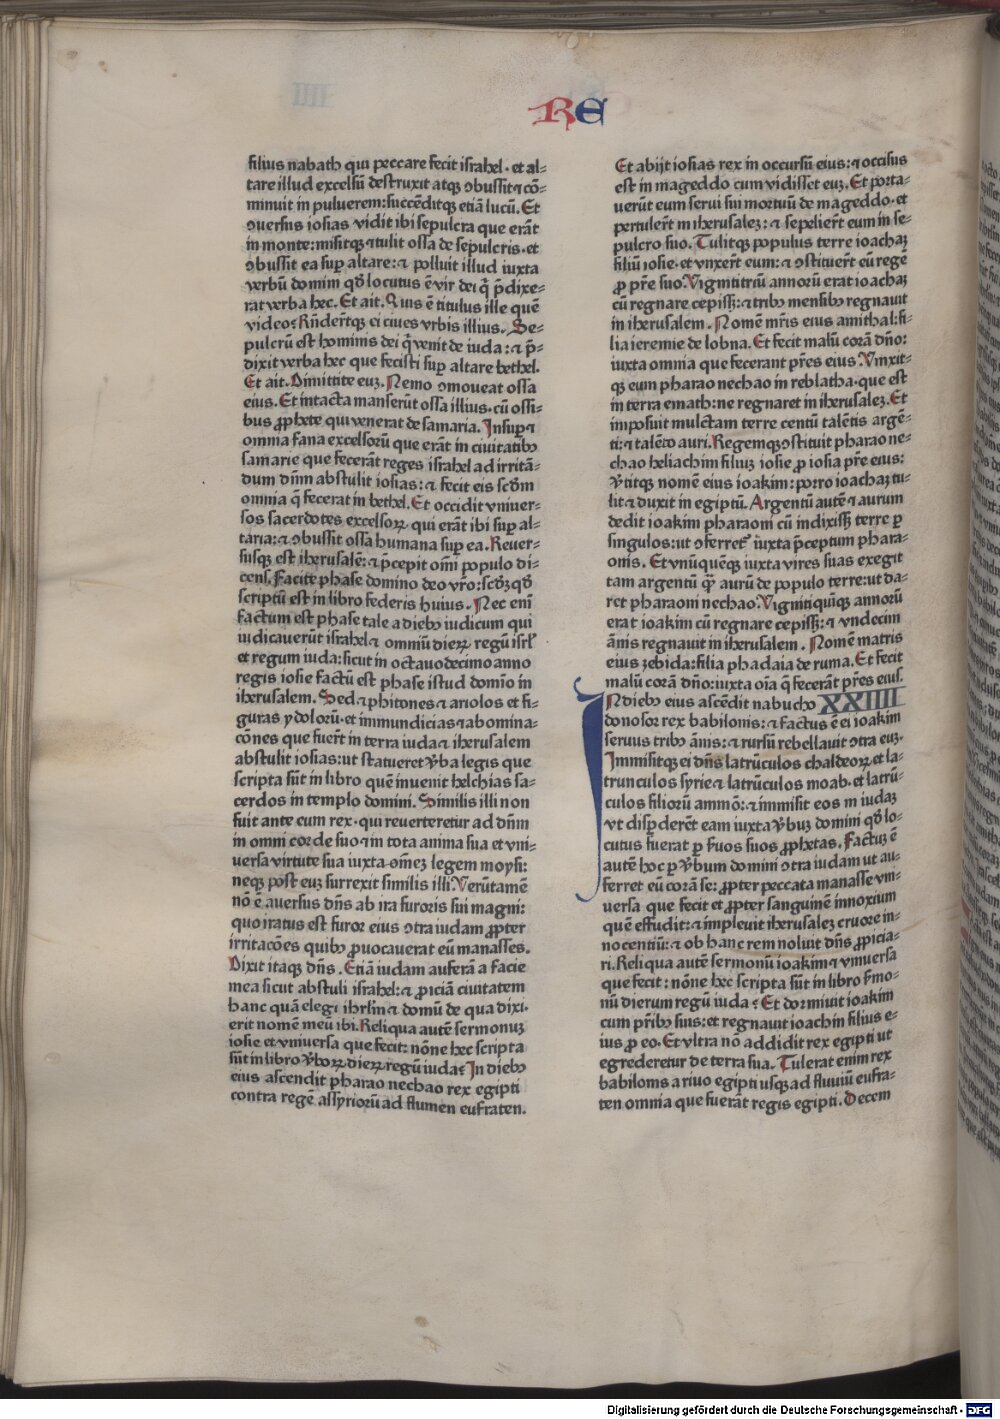 RE
filius nabath qui peccare fecit israhel · et al-
tare illud excelsū destruxit atqꝫ ꝯbussit ⁊ cō-
minuit in puluerem: succēditqꝫ etiā lucū. Et
ꝯuersus iosias vidit ibi sepulcra que erāt
in monte: misitqꝫ ⁊ tulit ossa de sepulcris · et
ꝯbussit ea suꝑ altare: ⁊ polluit illud iuxta
verbū domini qd̄ locutus ē vir dei q̄ p̄dixe-
rat verba hec. Et ait. Quis ē titulus ille quē
video? Rn̄derūtqꝫ ei ciues vrbis illius. Se-
pulcrū est hominis dei q̄ venit de iuda: ⁊ p̄-
dixit verba hec que fecisti suꝑ altare bethel.
Et ait. Dimittite euꝫ. Nemo ꝯmoueat ossa
eius. Et intacta manserūt ossa illius · cū ossi-
bus ꝓphete qui venerat de samaria. Insuꝑ ⁊
omnia fana excelsorū que erāt in ciuitatibꝰ
samarie que fecerāt reges israhel ad irritā-
dum dn̄m abstulit iosias: ⁊ fecit eis scd̄m
omnia q̄ fecerat in bethel. Et occidit vniuer-
sos sacerdotes excelsoꝝ qui erāt ibi suꝑ al-
taria: ⁊ ꝯbussit ossa humana suꝑ ea. Reuer-
susqꝫ est iherusalē: ⁊ p̄cepit om̄i populo di-
cens. Facite phase domino deo vr̄o: scd̄ꝫ qd̄
scriptū est in libro federis huius. Nec eni
factum est phase tale a diebꝰ iudicum qui
iudicauerūt israhel ⁊ omniū dieꝝ regū isrl̄
et regum iuda: sicut in octauodecimo anno
regis iosie factū est phase istud domīo in
iherusalem. Sed ⁊ phitones ⁊ ariolos et fi-
guras ydolorū · et immundicias ⁊ abomina-
cōnes que fuerūt in terra iuda ⁊ iherusalem
abstulit iosias: ut statueret v̄ba legis que
scripta sūt in libro quē inuenit helchias sa-
cerdos in templo domini. Similis illi non
fuit ante eum rex · qui reuerteretur ad dn̄m
in omni corde suo ⁊ in tota anima sua et vni-
uersa virtute sua iuxta om̄eꝫ legem moysi:
neqꝫ post euꝫ surrexit similis illi. Verūtamē
nō ē auersus dn̄s ab ira furoris sui magni:
quo iratus est furor eius ꝯtra iudam ꝓpter
irritacōes quibꝰ ꝓuocauerat eū manasses.
Dixit itaqꝫ dn̄s. Etiā iudam auferā a facie
mea sicut abstuli israhel: ⁊ ꝓiciā ciuitatem
hanc quā elegi ihrl̄m ⁊ domū de qua dixi.
erit nomē meū ibi. Reliqua autē sermonuꝫ
iosie et vniuersa que fecit: nōne hec scripta
sūt in libro v̄boꝝ dieꝝ regū iuda? In diebꝰ
eius ascendit pharao nechao rex egipti
contra regē assyriorū ad flumen eufraten.
Et abijt iosias rex in occursū eius: ⁊ occisus
est in mageddo cum vidisset euꝫ. Et porta-
uerūt eum serui sui mortuū de mageddo · et
pertulerūt in iherusaleꝫ: ⁊ sepelierūt eum in se-
pulcro suo. Tulitqꝫ populus terre ioachaꝫ
filiū iosie · et vnxerūt eum: ⁊ ꝯstituerūt eū regē
ꝓ pr̄e suo. Vigintitriū annorū erat ioachaꝫ
cū regnare cepissꝫ: ⁊ tribꝰ mensibꝰ regnauit
in iherusalem. Nomē mr̄is eius amithal: fi-
lia ieremie de lobna. Et fecit malū corā dn̄o:
iuxta omnia que fecerant pr̄es eius. Vinxit-
qꝫ eum pharao nechao in reblatha · que est
in terra emath: ne regnaret in iherusaleꝫ. Et
imposuit mulctam terre centū talētis argē-
ti: ⁊ talēto auri. Regemqꝫ ꝯstituit pharao ne-
chao heliachim filiuꝫ iosie ꝓ iosia pr̄e eius:
v̄titqꝫ nomē eius ioakim: porro ioachaꝫ tu-
lit ⁊ duxit in egiptū. Argentū autē ⁊ aurum
dedit ioakim pharaoni cū indixissꝫ terre ꝑ
singulos: ut ꝯferretᷣ iuxta p̄ceptum phara-
onis. Et vnūquēqꝫ iuxta vires suas exegit
tam argentū qꝫ̄ aurū de populo terre: ut da-
ret pharaoni nechao. Vigintiquīqꝫ annorū
erat ioakim cū regnare cepissꝫ: ⁊ vndecim
ānis regnauit in iherusalem. Nomē matris
eius zebida: filia phadaia de ruma. Et fecit
malū corā dn̄o: iuxta oīa q̄ fecerāt pr̄es eius.
In diebꝰ eius ascēdit nabucho XXIIII
donosor rex babilonis: ⁊ factus ē ei ioakim
seruus tribꝰ ānis: ⁊ rursū rebellauit ꝯtra euꝫ.
Immisitqꝫ ei dn̄s latrūculos chaldeoꝝ et la-
trunculos syrie ⁊ latrūculos moab · et latrū-
culos filiorū ammō: ⁊ immisit eos in iudaꝫ
vt disꝑderēt eam iuxta v̄buꝫ domini qd̄ lo-
cutus fuerat ꝑ s̄uos suos ꝓphetas. Factuꝫ ē
autē hoc ꝑ v̄bum domini ꝯtra iudam ut au-
ferret eū corā se: ꝓpter peccata manasse vni-
uersa que fecit et ꝓpter sanguinē innoxium
quē effudit: ⁊ impleuit iherusaleꝫ cruore in-
nocentiū: ⁊ ob hanc rem noluit dn̄s ꝓpicia-
ri. Reliqua autē sermonū ioakim ⁊ vniuersa
que fecit: nōne hec scripta sūt in libro s̄mo-
nū dierum regū iuda? Et dormiuit ioakim
cum pr̄ibꝰ suis: et regnauit ioachin filius e-
ius ꝓ eo. Et vltra nō addidit rex egipti ut
egrederetur de terra sua. Tulerat enim rex
babilonis a riuo egipti usqꝫ ad fluuiū eufra-
ten omnia que fuerāt regis egipti. Decem
Digitalisierung gefördert durch die Deutsche Forschungsgemeinschaft - DFG